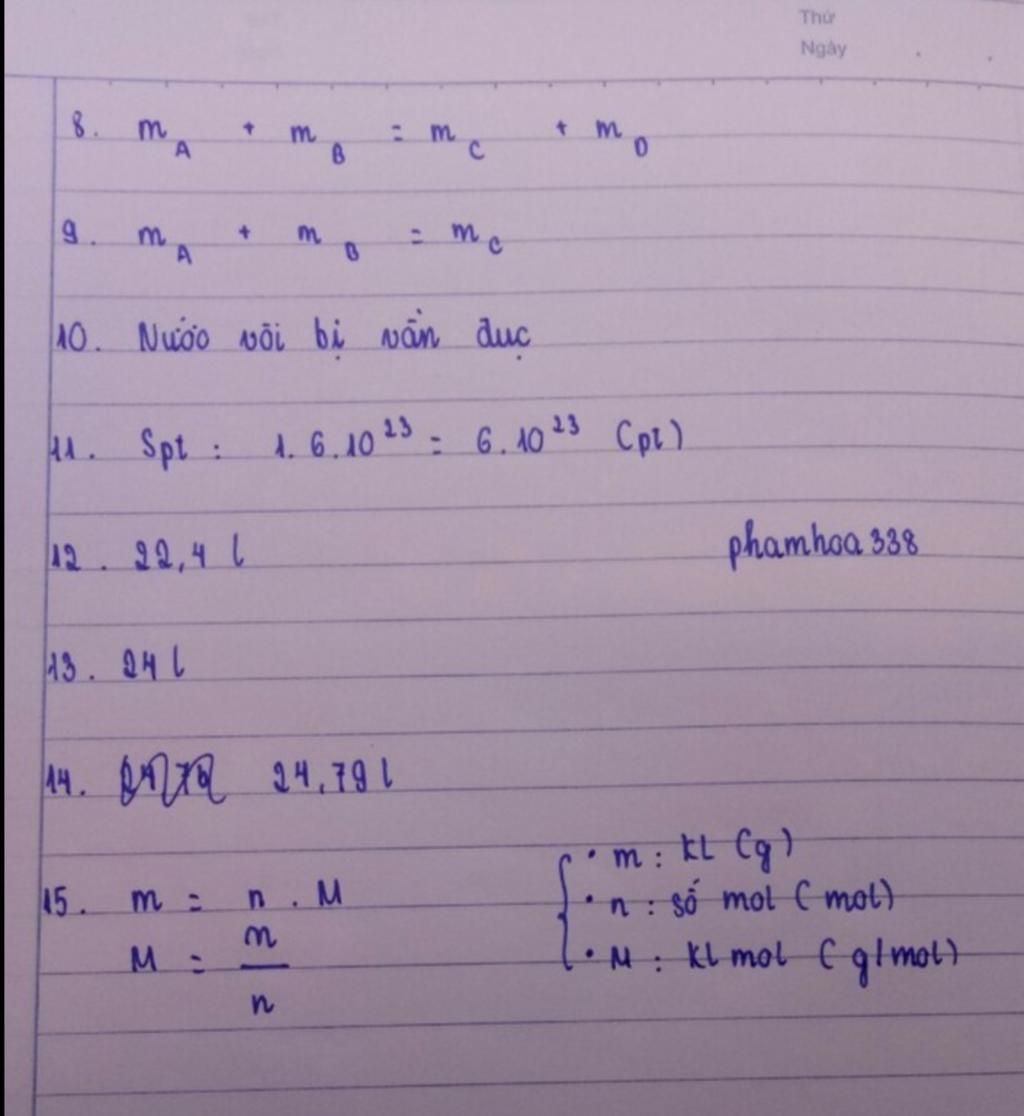 Thứ
Ngày
8. m_A + m_B = m_C + m_D
9. m_A + m_B = m_C
10. Nước vôi bị vẩn đục
11. Spt : 1. 6.10²³ = 6.10²³ (pt)
12. 22,4 l
phamhoa338
13. 24 l
14. 24,79 l
15. m = n . M
M = m/n
• m : kl (g)
• n : số mol (mol)
• M : kl mol (g/mol)